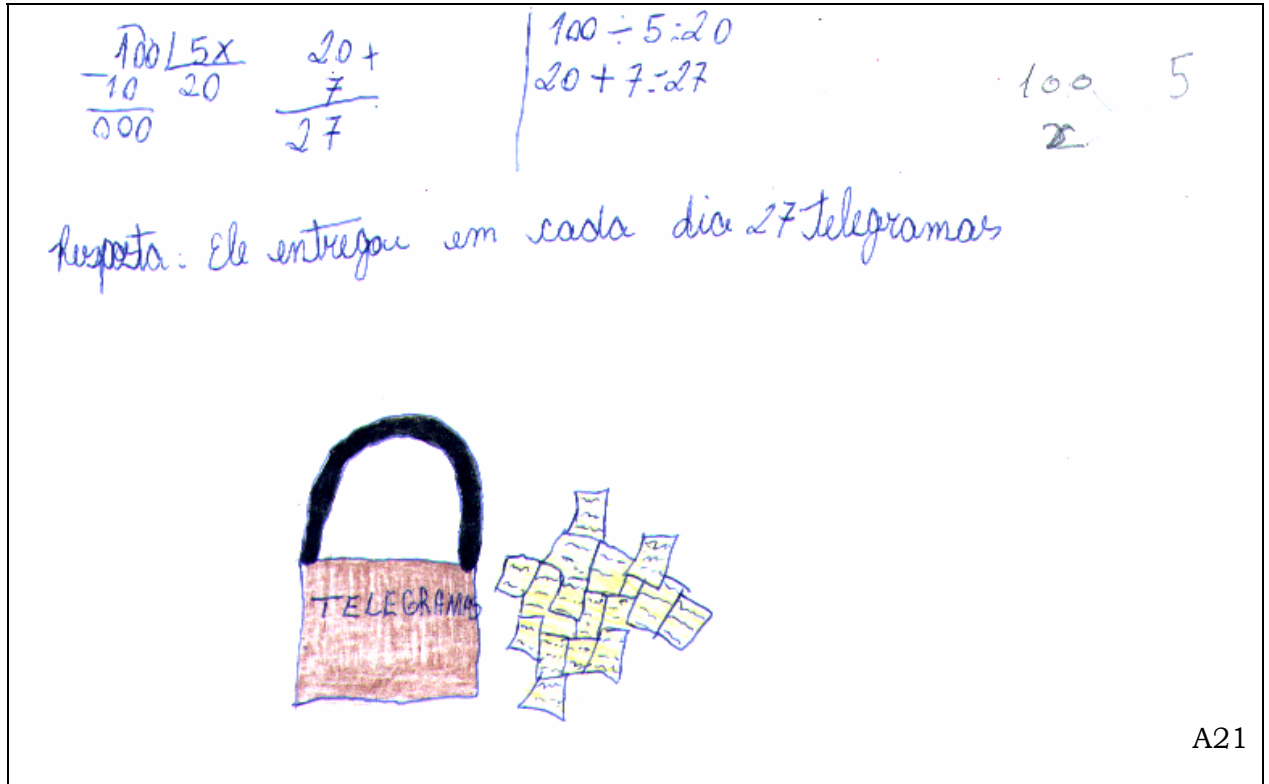 100 5x 20+
-10 20 7
000 27
100 ÷ 5 = 20
20 + 7 = 27
100 5
x
Resposta: Ele entregou em cada dia 27 telegramas
TELEGRAMAS
A21